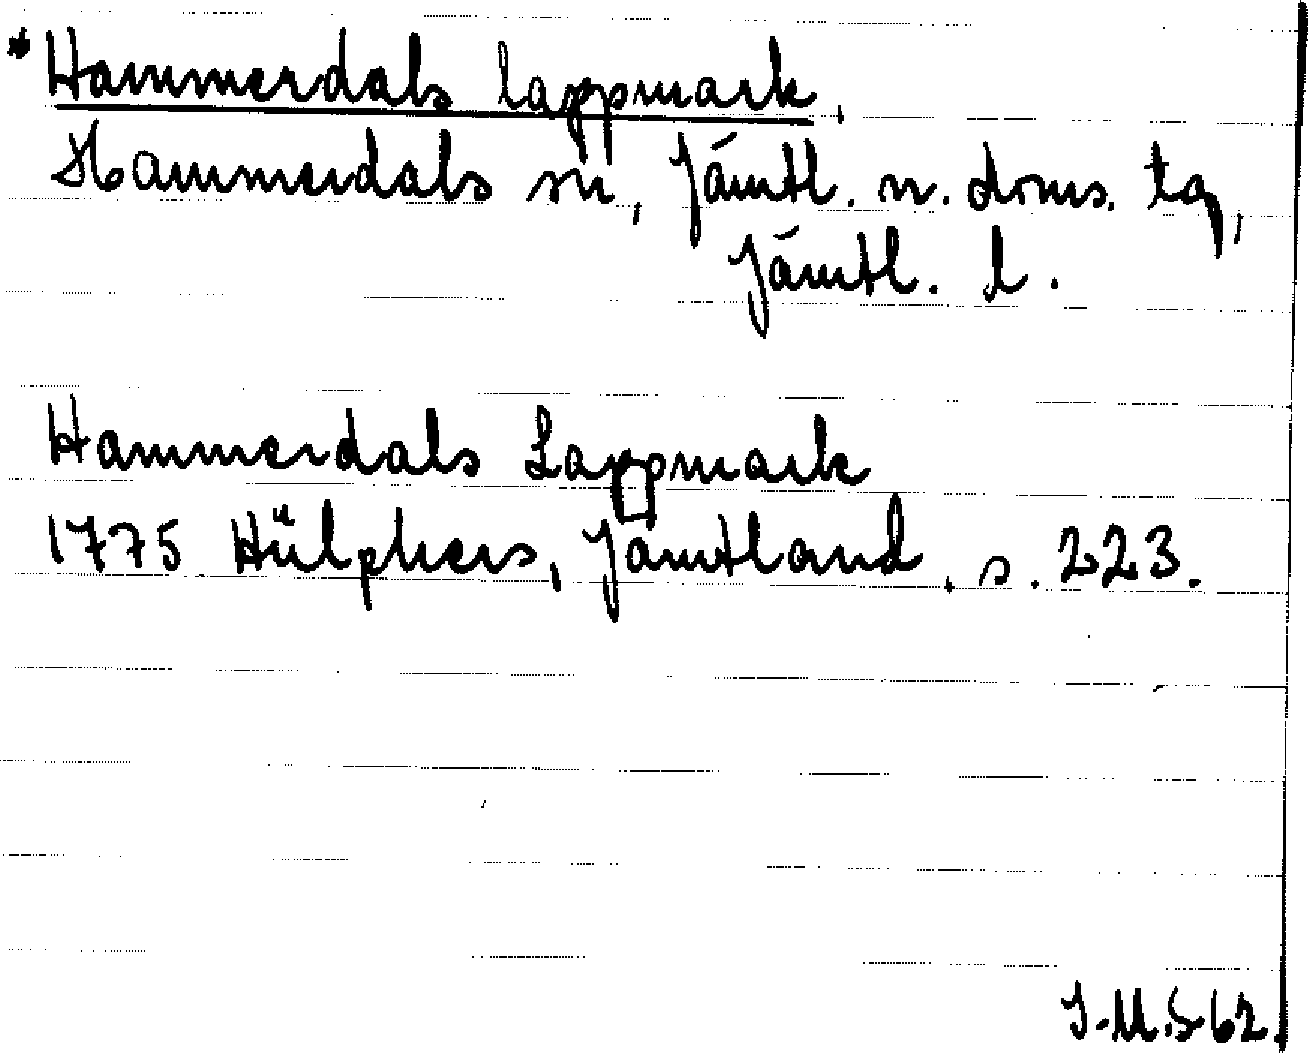 * Hammerdals lappmark.
Hammerdals sn, Jämtl. n. doms. tg,
Jämtl. l.
Hammerdals Lappmark
1775 Hülphers, Jämtland, s. 223.
J.M.S 62